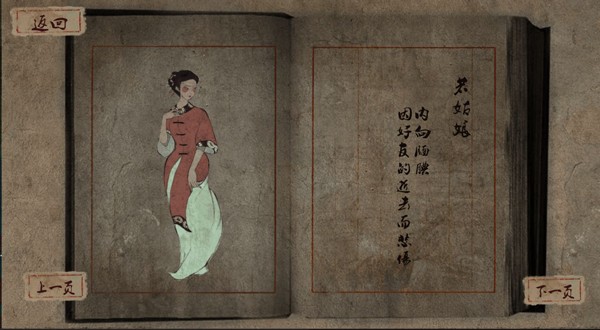 返回
姑娘
内向腼腆
因好友的逝去而悲伤
上一页
下一页